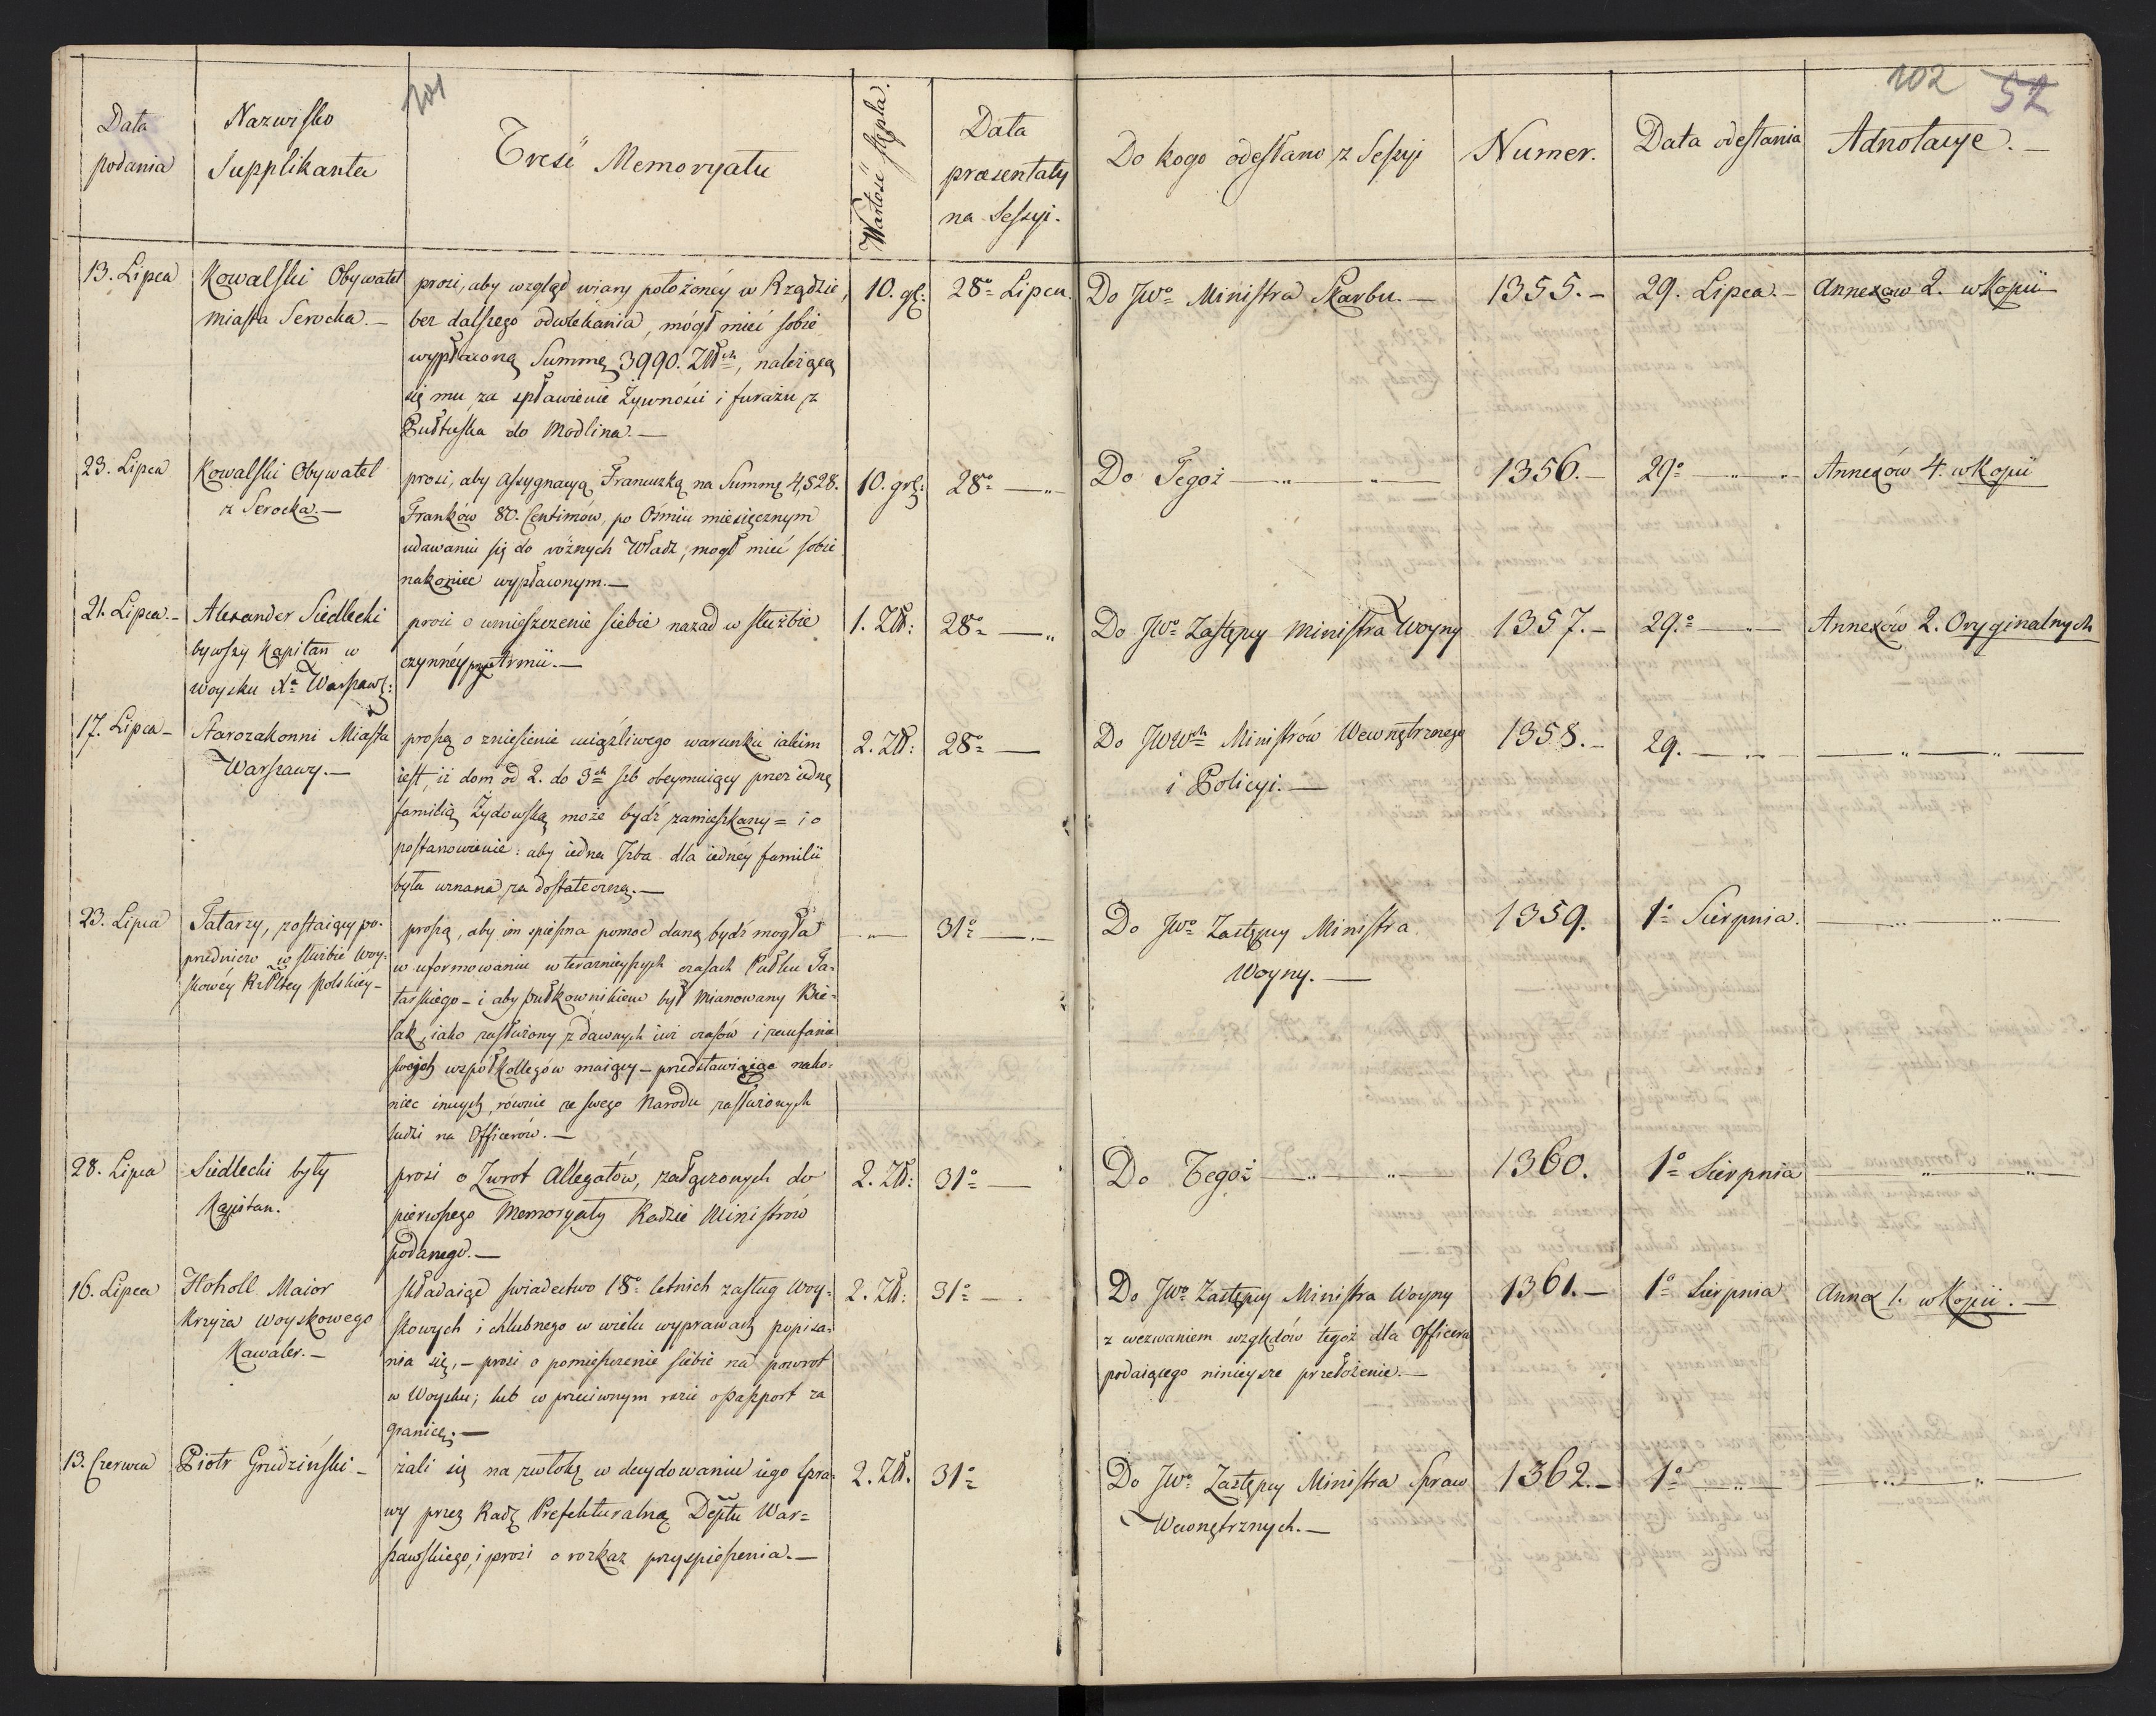 101
102 52
Data podania
Nazwisko Supplikanta
Treść Memoryału
Wartość stępla.
Data præsentaty na Sessyi.
Do kogo odesłano z Sessyi
Numer.
Data odesłania
Adnotacye. —
13. Lipca
Kowalski Obywatel
miasta Serocka. —
prosi, aby wzgląd wiary położonéy w Rządzie,
bez dalszego odwlekania, mógł mieć sobie
wypłaconą Summę 3990. Złłch, należącą
się mu za spławienie Żywności i furażu z
Pułtuska do Modlina. —
10. gr:
28o Lipca.
Do JWo Ministra Skarbu. —
1355. —
29. Lipca. —
Annexow 2. w Kopii
23. Lipca
Kowalski Obywatel
z Serocka. —
prosi, aby assygnacyą Francuzką na Summę 4,528.
Franków 80. Centimów, po Ośmiu miesięcznym
udawaniu się do różnych Władz, mogł mieć sobie
nakoniec wypłaconym. —
10. gr:
28o — „
Do Tegoż — „ — „ —
1356. —
29o — „
Annexów 4. w Kopii
21. Lipca. —
Alexander Siedlecki
bywszy Kapitan w
woysku Xa Warszaws:
prosi o umieszczenie siebie nazad w służbie
czynnéy przy Armii. —
1. Zł:
28o — „
Do JWo Zastępcy Ministra Woyny
1357. —
29.o — „
Annexów 2. Oryginalnych
17. Lipca —
Starozakonni Miasta
Warszawy. —
proszą o zniesienie uciążliwego warunku iakim
iest, iż dom od 2. do 3ch izb obeymuiący przez iedną
familią Żydowską może bydź zamieszkany = i o
postanowienie: aby iedna Izba dla iednéy familii
była uznana za dostateczną. —
2. Zł:
28o —
Do JWWch Ministrów Wewnętrznego
i Policyi. —
1358. —
29. — „ —
— „ — „ —
23. Lipca
Tatarzy, zostaiący po-
przedniczo w służbie woy-
skowéy RzPltey Polskiey —
proszą, aby im spieszna pomoc daną bydź mogła
w uformowaniu w teraznieyszych czasach Pułku Ta-
tarskiego — i aby pułkownikiem był mianowany Bie-
lak, iako zasłużony z dawnych iuż czasów i zaufanie
swoich współkollegów maiący — przedstawiaiąc nako-
niec innych, równie ze swego Narodu zasłużonych
ludzi na Officerów. —
— „ —
31o — „
Do JWo Zastępcy Ministra
Woyny. —
1359.
1o Sierpnia.
— „ — „ —
28. Lipca
Siedlecki były
Kapitan.
prosi o Zwrot Allegatów, załączonych do
pierwszego Memoryału Radzie Ministrów
podanego. —
2. Zł:
31o —
Do Tegoż — „ — „ —
1360.
1o Sierpnia
— „ — „
16. Lipca
Hoholl Maior
Krzyża Woyskowego
Kawaler. —
składaiąc świadectwo 18o letnich zasług Woy-
skowych i chlubnego w wielu wyprawach popisa-
nia się, — prosi o pomieszczenie siebie na powrot
w Woysku; lub w przeciwnym razie o Paszport za
granicę. —
2. Zł:
31o — .
Do JWo Zastępcy Ministra Woyny
z wezwaniem względów tegoż dla Officera
podaiącego ninieysze przełożenie. —
1361. —
1o Sierpnia
Annex 1. w Kopii. —
13. Czerwca
Piotr Grudziński —
żali się na zwłokę w decydowaniu iego Spra-
wy przez Radę Prefekturalną Deptu War-
szawskiego, i prosi o rozkaz przyspieszenia. —
2. Zł.
31o
Do JWo Zastępcy Ministra Spraw
Wewnętrznych. —
1362. —
1o — „ —
— „ — „ —